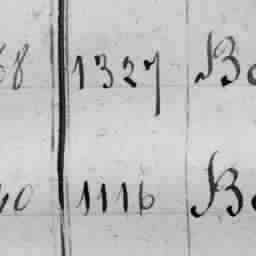 68 1327 Bo
40 1116 Bo